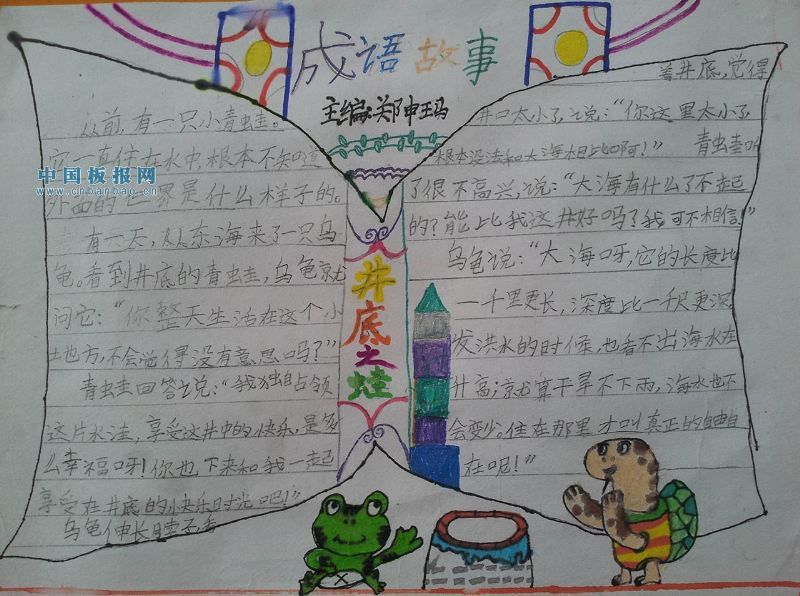 成语故事
主编:郑申玛
从前,有一只小青蛙。
它一直住在水中,根本不知道
外面的世界是什么样子的。
有一天,从东海来了一只乌
龟。看到井底的青蛙,乌龟就
问它:“你整天生活在这个小
地方,不会觉得没有意思吗?”
青蛙回答说:“我独自占领
这片水洼,享受这井中的快乐,是多
么幸福呀!你也下来和我一起
享受在井底的快乐时光吧!”
乌龟伸长脖子,看
井底之蛙
着井底,觉得
井口太小了,说:“你这里太小了,
根本没法和大海相比啊!” 青蛙听
了很不高兴,说:“大海有什么了不起
的?能比我这井好吗?我可不相信!”
乌龟说:“大海呀,它的长度比
一千里更长,深度比一千尺更深
发洪水的时候,也看不出海水在
升高;就算干旱不下雨,海水也不
会变少。住在那里才叫真正的自由自
在呢!”
中国板报网
www.cnbanbao.cn